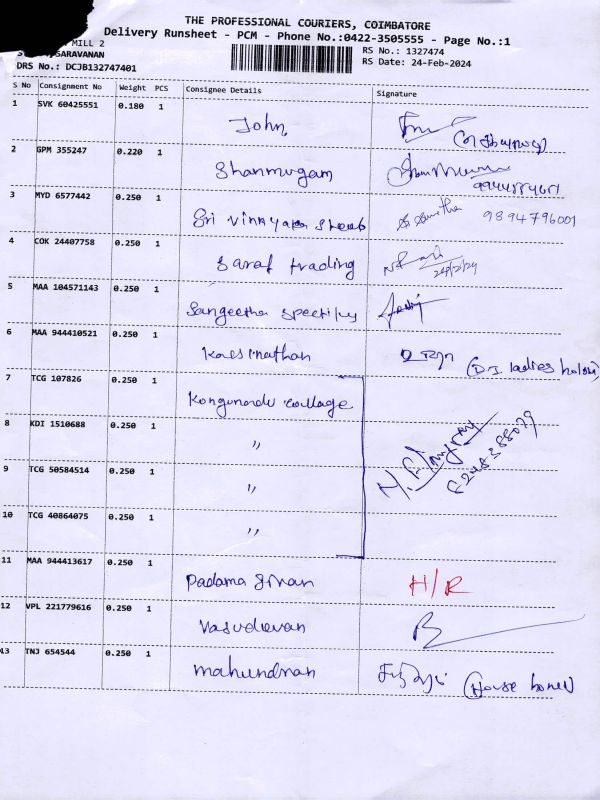 THE PROFESSIONAL COURIERS, COIMBATORE
Delivery Runsheet - PCM - Phone No.:0422-3505555 - Page No.:1
MILL 2
SARAVANAN
DRS No.: DCJB132747401
RS No.: 1327474
RS Date: 24-Feb-2024
S No Consignment No Weight PCS Consignee Details Signature
1 SVK 60425551 0.180 1 John
2 GPM 355247 0.220 1 Shanmugam
9944884611
3 MYD 6577442 0.250 1 Sri vinnyaga 9894796001
4 COK 24407758 0.250 1 Saraf trading
24/2/24
5 MAA 104571143 0.250 1 Sangeetha
6 MAA 944410521 0.250 1 Kasinathan (D.J. ladies
7 TCG 107826 0.250 1 Kongunadu collage
8 KDI 1510688 0.250 1 "
6248388079
9 TCG 50584514 0.250 1 "
10 TCG 40864075 0.250 1 "
11 MAA 944413617 0.250 1 Padama H/R
12 VPL 221779616 0.250 1 Vasudevan
13 TNJ 654544 0.250 1 (House